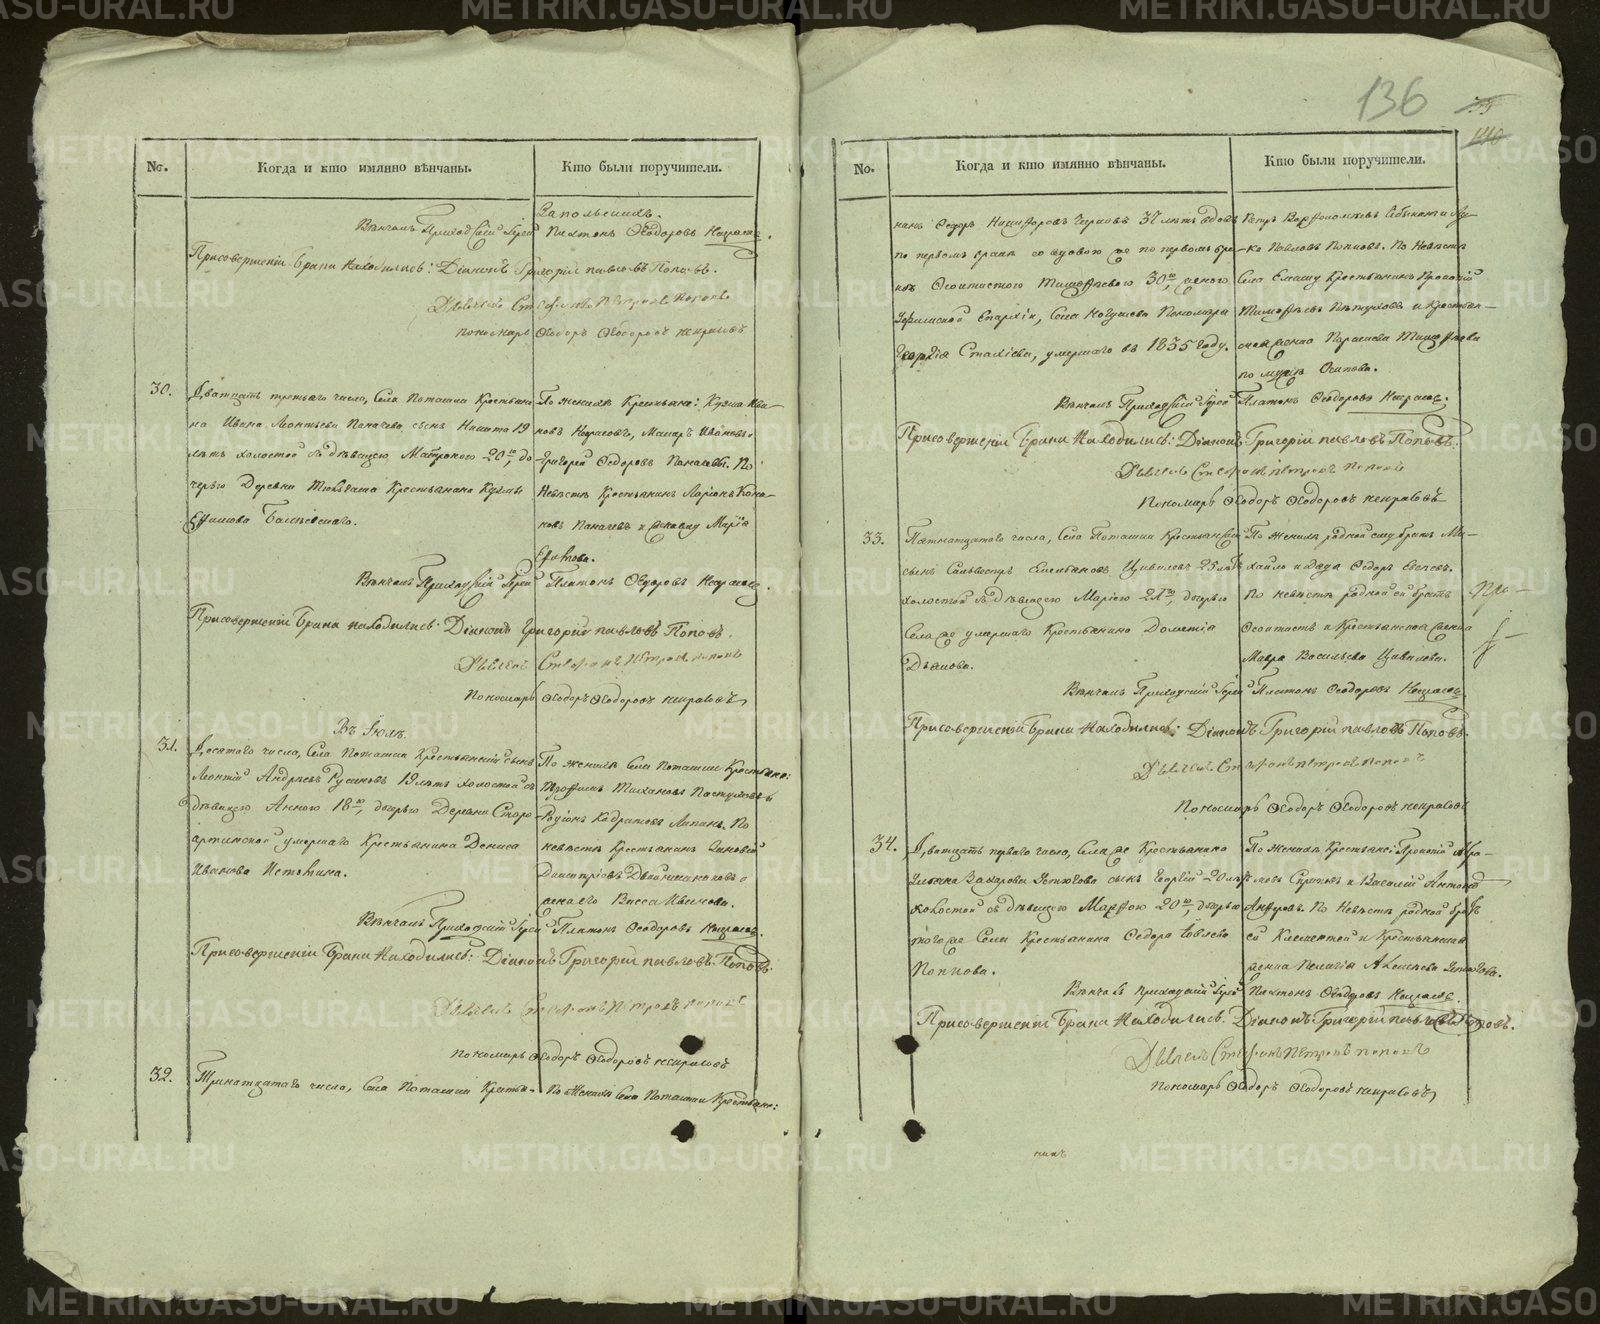 No.
Когда и кто имянно вѣнчаны.
Кто были поручители.
Запольскихъ.
Вѣнчалъ Приходскій Іерей Платонъ Ѳеодоровъ Некрасовъ.
При совершеніи брака находились: Діаконъ Григорій Павловъ Поповъ.
Стефанъ Петровъ Поповъ
Пономарь Ѳеодоръ Ѳеодоровъ Некрасовъ
30.
Дватцать третьяго числа, Села Поташки Крестьяни-
на Ивана Леонтьева Паначева сынъ Никита 19
лѣтъ холостой съ дѣвицею Матроною 20ю, до-
черью Деревни Крестьянина Кузмы
Ефимова
По женихѣ Крестьяне: Кузма Ива-
новъ Некрасовъ, Ивановъ
Григорій Ѳедоровъ Паначевы. По
Невѣстѣ Крестьянинъ Ларіонъ
новъ Паначевъ и Марія
Ефимова.
Вѣнчалъ Приходскій Іерей Платонъ Ѳеодоровъ Некрасовъ.
При совершеніи брака находились: Діаконъ Григорій Павловъ Поповъ.
Стефанъ Петровъ Поповъ
Пономарь Ѳеодоръ Ѳеодоровъ Некрасовъ
Въ Іюлѣ.
31.
Десятаго числа, Села Поташки Крестьянскій сынъ
Леонтій Андреевъ Русиновъ 19 лѣтъ холостой съ
дѣвицею Анною 18ю, дочерью Деревни Старо-
артинской умершаго Крестьянина Дениса
Иванова Истомина.
По женихѣ Села Поташки Крестьяне:
Тимофей Пастуховъ и
Родіонъ Лапинъ. По
невѣстѣ Крестьянинъ Зиновей
Димитріевъ Двойнишниковъ и
жена его Васса Иванова.
Вѣнчалъ Приходскій Іерей Платонъ Ѳеодоровъ Некрасовъ.
При совершеніи Брака Находились: Діаконъ Григорій Павловъ Поповъ.
Стефанъ Петровъ Поповъ
Пономарь Ѳеодоръ Ѳеодоровъ Некрасовъ
32.
Тринатцатаго числа, Села Поташки Крестья-
По Женихѣ Села Поташки Крестьяне:
136
110
No.
Когда и кто имянно вѣнчаны.
Кто были поручители.
нинъ Ѳедоръ Никифоровъ Черновъ 37 лѣтъ вдовъ
по первомъ бракѣ со вдовою же по первомъ бра-
кѣ Ѳеоктистою Тимофѣевою 30ю, женою
Уфимской Епархіи, Села Пономаря
Георгія Стахіева, умершаго въ 1835 году.
Петръ Варфоломѣевъ и Лу-
ка Павловъ Поповъ. По Невѣстѣ
Села Емашу Крестьянинъ Прокопій
Тимофѣевъ Пѣтуховъ и Крестьян-
ская жена Парасковья Тимофѣева
по мужѣ Осипова.
Вѣнчалъ Приходскій Іерей Платонъ Ѳеодоровъ Некрасовъ.
При совершеніи Брака Находились: Діаконъ Григорій Павловъ Поповъ.
Стефанъ Петровъ Поповъ
Пономарь Ѳеодоръ Ѳеодоровъ Некрасовъ
33.
Пятнатцатаго числа, Села Поташки Крестьянскій
сынъ Сильвестръ Емельяновъ Цивилевъ 25 лѣтъ
холостой съ дѣвицею Маріею 21ю, дочерью
Села же умершаго Крестьянина Дометія
По женихѣ родной ему братъ Ми-
хайло и дядя Ѳедоръ
По невѣстѣ родной ей братъ
Ѳеоктистъ и Крестьянская жена
Мавра Васильева Цивилева.
Вѣнчалъ Приходскій Іерей Платонъ Ѳеодоровъ Некрасовъ
При совершеніи Брака Находились: Діаконъ Григорій Павловъ Поповъ.
Стефанъ Петровъ Поповъ
Пономарь Ѳеодоръ Ѳеодоровъ Некрасовъ
34.
Дватцать перваго числа, Села же Крестьянина
Захарова Устюгова сынъ Георгій 20 лѣтъ
холостой съ дѣвицею Марфою 20ю, дочерью
того же Села Крестьянина Ѳедора Іовлева
Попкова.
По Женихѣ Крестьяне: Прокопій
и Василій Антоновъ
По Невѣстѣ родной братъ
ей Климентей и Крестьянская
жена Пелагія Алексеева Устюгова.
Вѣнчалъ Приходскій Іерей Платонъ Ѳеодоровъ Некрасовъ.
При совершеніи Брака Находились: Діаконъ Григорій Павловъ Поповъ.
Стефанъ Петровъ Поповъ
Пономарь Ѳеодоръ Ѳеодоровъ Некрасовъ
METRIKI.GASO-URAL.RU